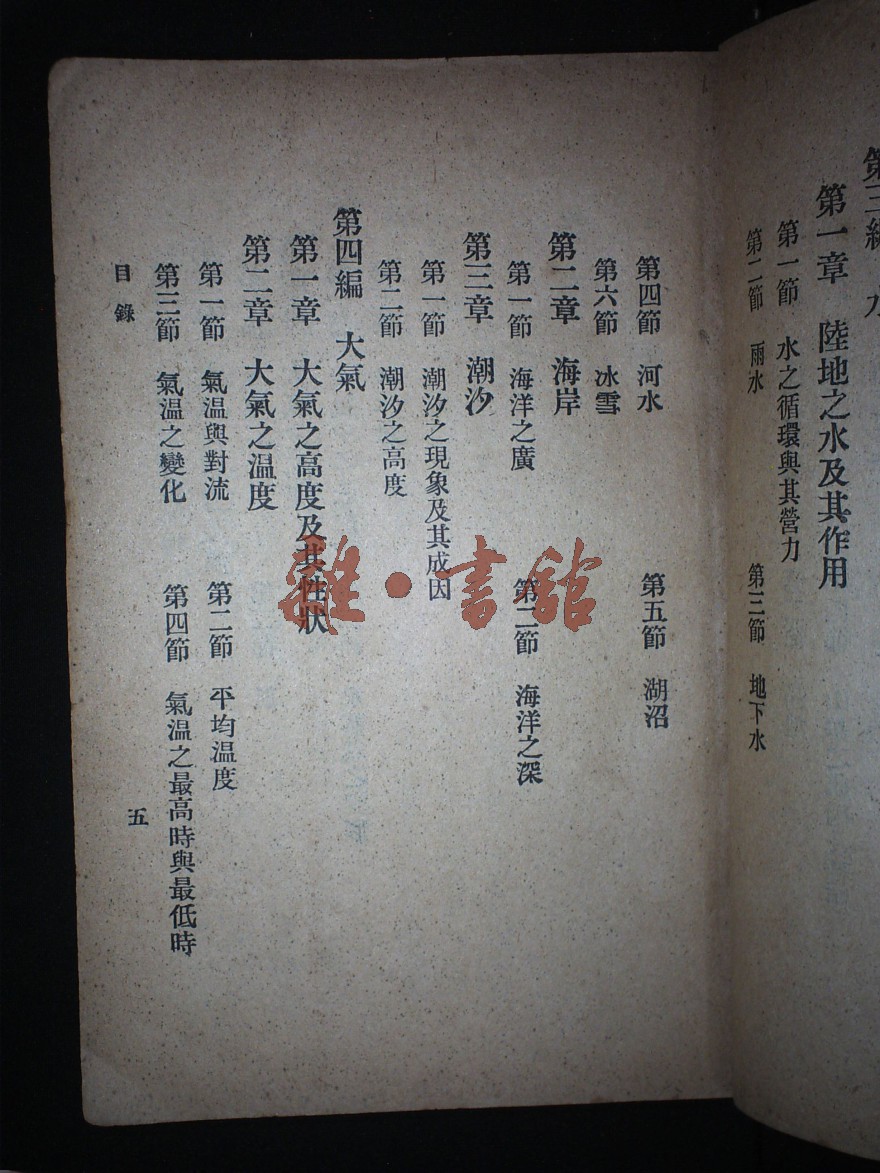 第三編 水
第一章 陸地之水及其作用
第一節 水之循環與其營力
第二節 雨水 第三節 地下水
第四節 河水 第五節 湖沼
第六節 冰雪
第二章 海岸
第一節 海洋之廣 第二節 海洋之深
第三章 潮汐
第一節 潮汐之現象及其成因
第二節 潮汐之高度
第四編 大氣
第一章 大氣之高度及其性狀
第二章 大氣之温度
第一節 氣温與對流 第二節 平均温度
第三節 氣温之變化 第四節 氣温之最高時與最低時
目錄 五
雜·書館